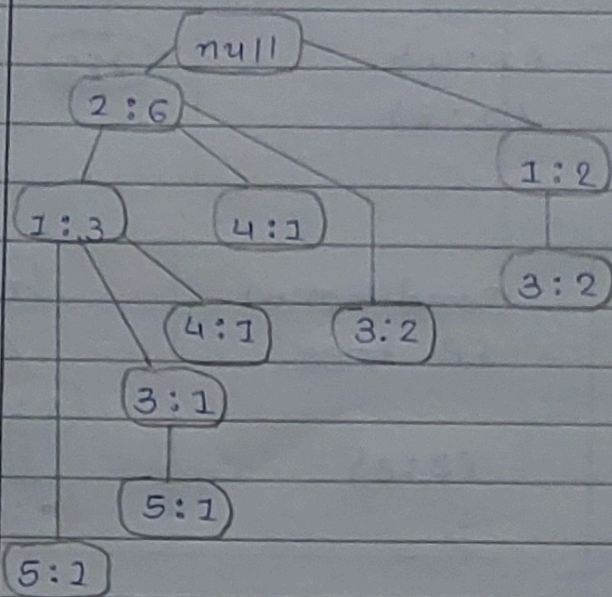 null
2:6
1:2
1:3
4:1
3:2
4:1
3:2
3:1
5:1
5:1